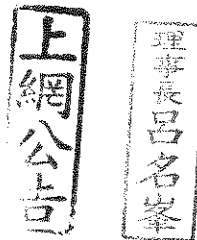 上網公告
理事長呂名峯